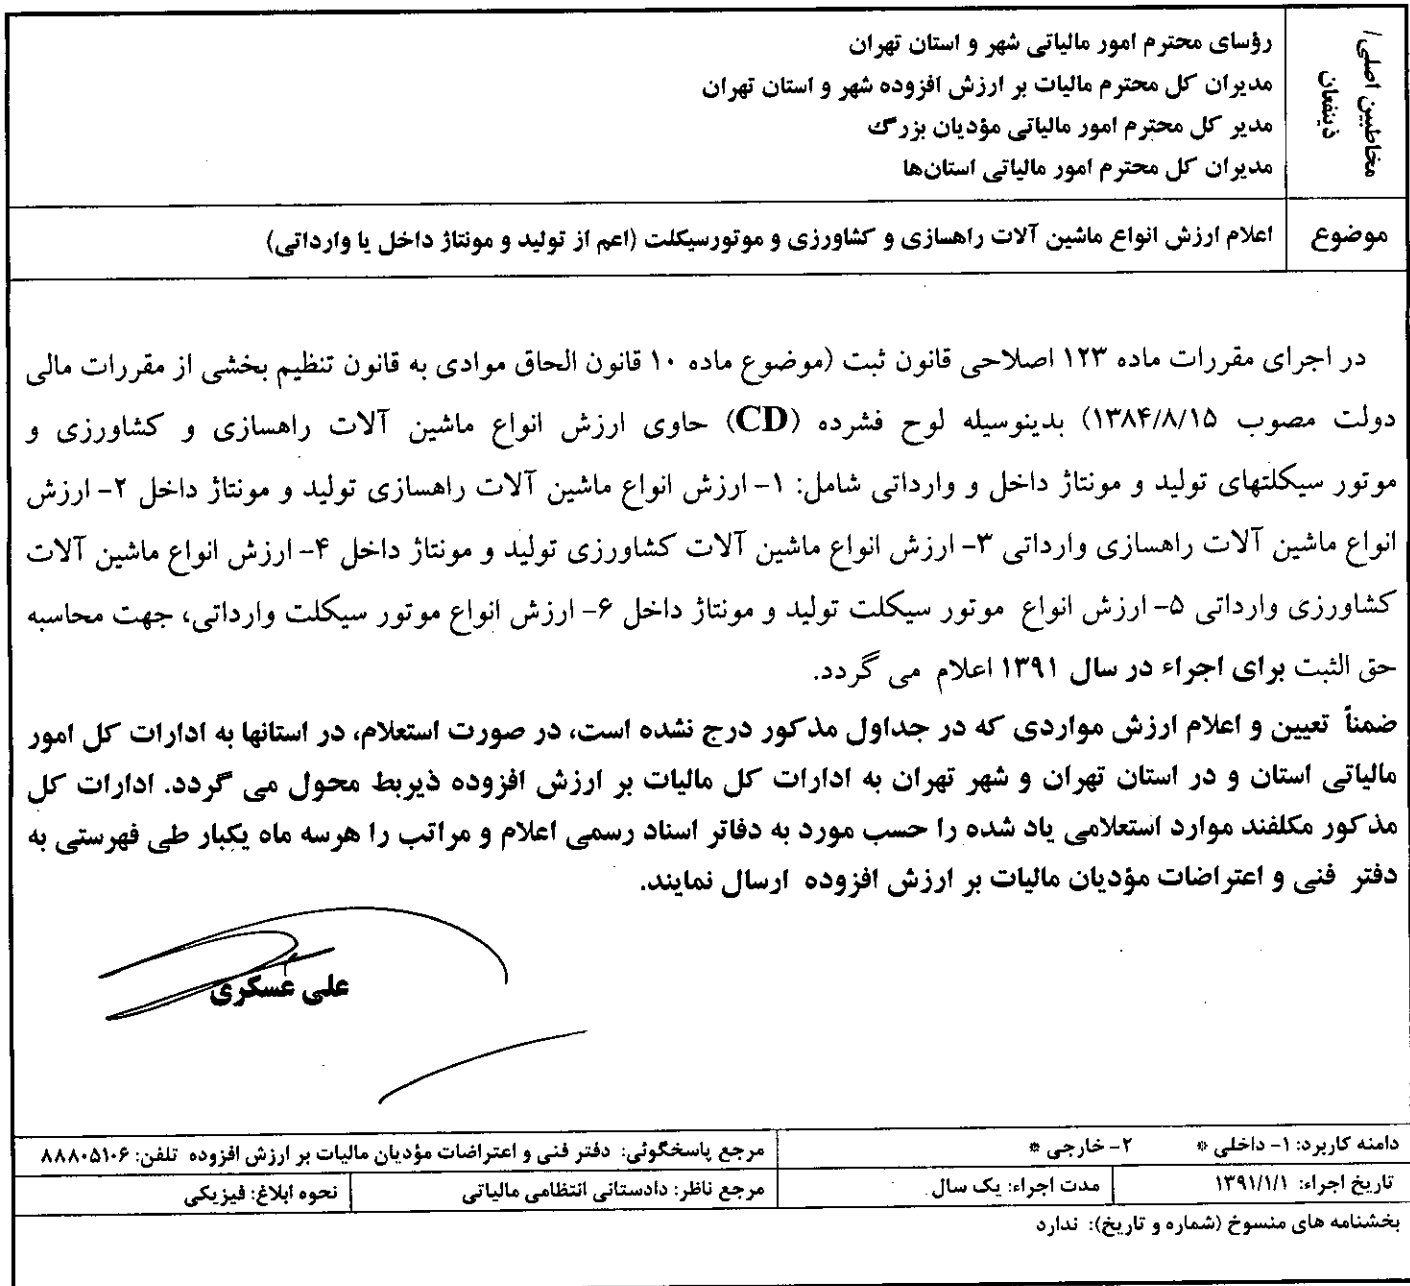 مخاطبین اصلی/
ذینفعان
رؤسای محترم امور مالیاتی شهر و استان تهران
مدیران کل محترم مالیات بر ارزش افزوده شهر و استان تهران
مدیر کل محترم امور مالیاتی مؤدیان بزرگ
مدیران کل محترم امور مالیاتی استان‌ها
موضوع
اعلام ارزش انواع ماشین آلات راهسازی و کشاورزی و موتورسیکلت (اعم از تولید و مونتاژ داخل یا وارداتی)
در اجرای مقررات ماده ۱۲۳ اصلاحی قانون ثبت (موضوع ماده ۱۰ قانون الحاق موادی به قانون تنظیم بخشی از مقررات مالی
دولت مصوب ۱۳۸۴/۸/۱۵) بدینوسیله لوح فشرده (CD) حاوی ارزش انواع ماشین آلات راهسازی و کشاورزی و
موتور سیکلتهای تولید و مونتاژ داخل و وارداتی شامل: ۱- ارزش انواع ماشین آلات راهسازی تولید و مونتاژ داخل ۲- ارزش
انواع ماشین آلات راهسازی وارداتی ۳- ارزش انواع ماشین آلات کشاورزی تولید و مونتاژ داخل ۴- ارزش انواع ماشین آلات
کشاورزی وارداتی ۵- ارزش انواع موتور سیکلت تولید و مونتاژ داخل ۶- ارزش انواع موتور سیکلت وارداتی، جهت محاسبه
حق الثبت برای اجراء در سال ۱۳۹۱ اعلام می گردد.
ضمناً تعیین و اعلام ارزش مواردی که در جداول مذکور درج نشده است، در صورت استعلام، در استانها به ادارات کل امور
مالیاتی استان و در استان تهران و شهر تهران به ادارات کل مالیات بر ارزش افزوده ذیربط محول می گردد. ادارات کل
مذکور مکلفند موارد استعلامی یاد شده را حسب مورد به دفاتر اسناد رسمی اعلام و مراتب را هرسه ماه یکبار طی فهرستی به
دفتر فنی و اعتراضات مؤدیان مالیات بر ارزش افزوده ارسال نمایند.
علی عسکری
دامنه کاربرد: ۱- داخلی * ۲- خارجی * مرجع پاسخگوئی: دفتر فنی و اعتراضات مؤدیان مالیات بر ارزش افزوده تلفن: ۸۸۸۰۵۱۰۶
تاریخ اجراء: ۱۳۹۱/۱/۱ مدت اجراء: یک سال مرجع ناظر: دادستانی انتظامی مالیاتی نحوه ابلاغ: فیزیکی
بخشنامه های منسوخ (شماره و تاریخ): ندارد